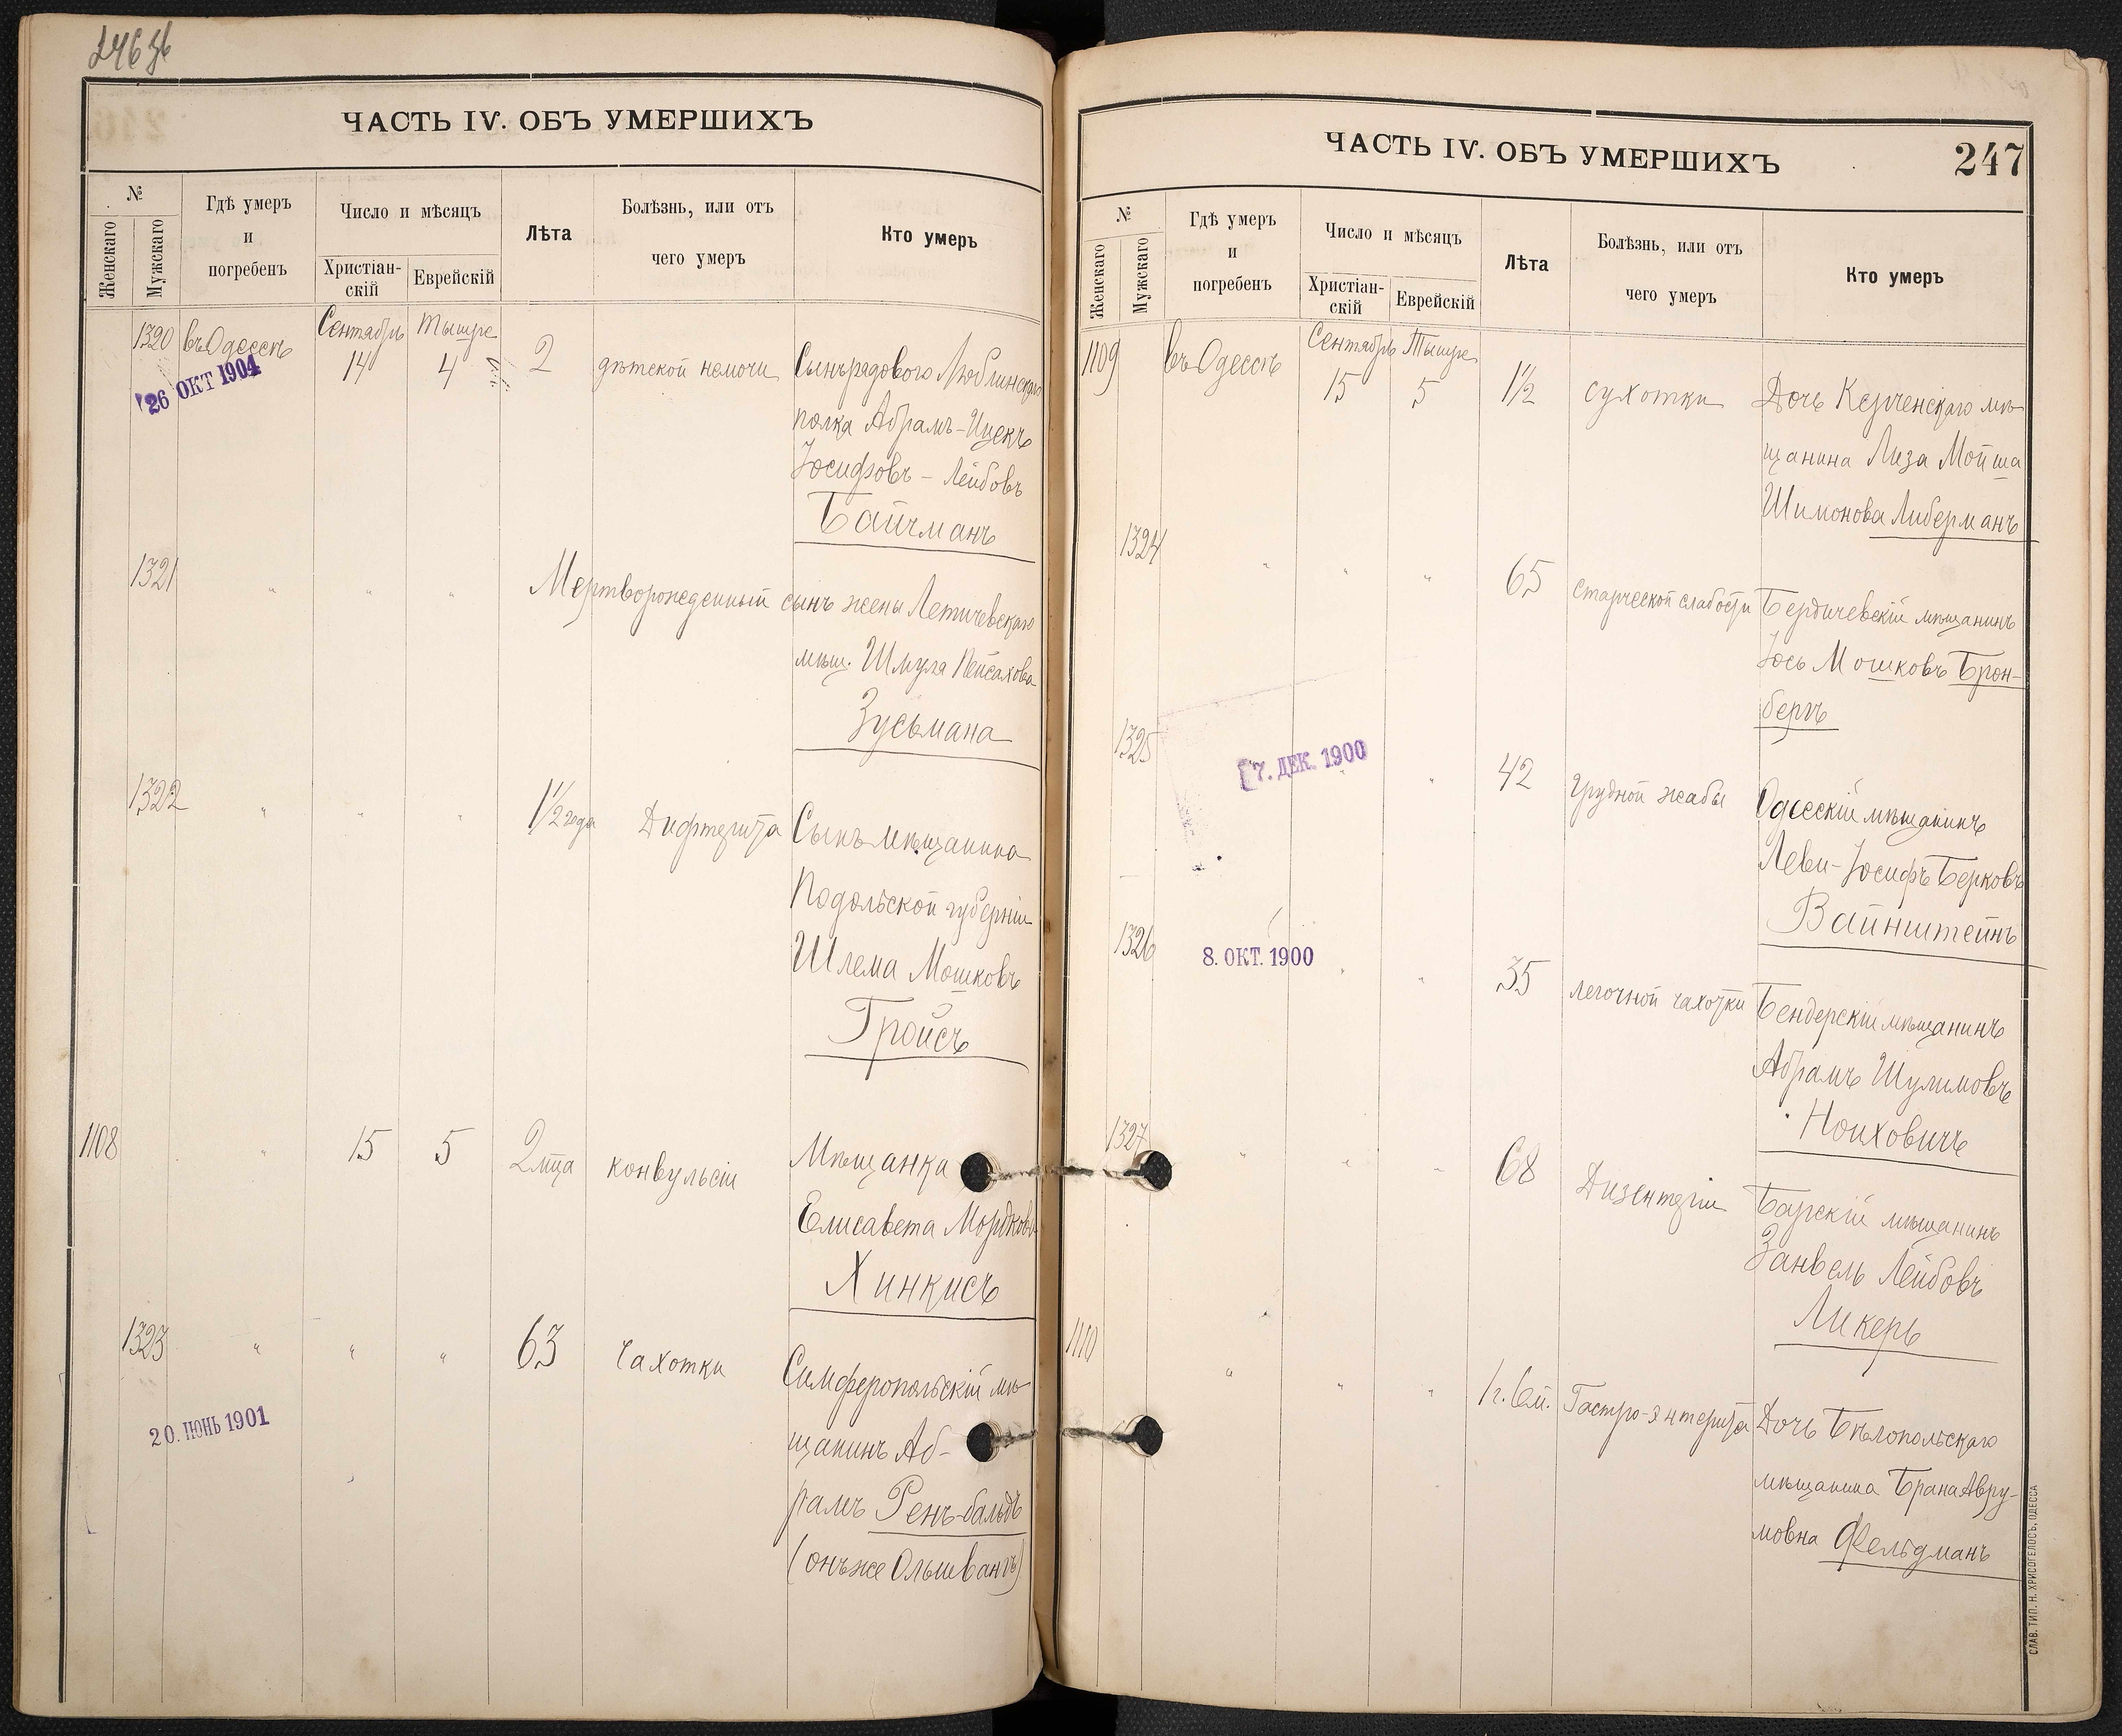 246 об
ЧАСТЬ IV. ОБЪ УМЕРШИХЪ
№
Женскаго
Мужскаго
Гдѣ умеръ
и
погребенъ
Число и мѣсяцъ
Христіан-
скій
Еврейскій
Лѣта
Болѣзнь, или отъ
чего умеръ
Кто умеръ
1320 въ Одессѣ Сентябрь 14 Тышре 4 2 дѣтской немочи Сынъ рядового Люблинскаго
полка Абрамъ-Ицекъ
Іосифовъ-Лейбовъ
Байчманъ
26 ОКТ 1904
1321 " " " Мертворожденный сынъ жены Летичевскаго
мѣщ. Шмуля Пейсахова
Зусьмана
1322 " " " 1½ года Дифтерита Сынъ мѣщанина
Подольской губерніи
Шлема Мошковъ
Гройсъ
1108 " 15 5 2 мца конвульсіи Мѣщанка
Елисавета Мордкова
Хинкисъ
1323 " " " 63 чахотки Симферопольскій мѣ-
щанинъ Аб-
рамъ Ренъ-бальдъ
(онъ же Ольшвангъ)
20. ІЮНЬ 1901
ЧАСТЬ IV. ОБЪ УМЕРШИХЪ
247
№
Женскаго
Мужскаго
Гдѣ умеръ
и
погребенъ
Число и мѣсяцъ
Христіан-
скій
Еврейскій
Лѣта
Болѣзнь, или отъ
чего умеръ
Кто умеръ
1109 въ Одессѣ Сентябрь 15 Тышре 5 1½ сухотки Дочь Керченскаго мѣ-
щанина Лиза Мойша
Шимонова Либерманъ
1324 " " " 65 старческой слабости Бердичевскій мѣщанинъ
Іось Мошковъ Брон-
бергъ
1325 " " 42 грудной жабы Одесскій мѣщанинъ
Леви-Іосифъ Берковъ
Вайнштейнъ
7. ДЕК. 1900
1326 " " 35 легочной чахотки Бендерскій мѣщанинъ
Абрамъ Шулимовъ
Ноиховичъ
8. ОКТ. 1900
1327 " " " 68 Дизентеріи Барскій мѣщанинъ
Занвель Лейбовъ
Ликеръ
1110 " " " 1 г. 6 м. Гастро-энтерита Дочь Бѣлопольскаго
мѣщанина Брана Авру-
мовна Фельдманъ
СЛАВ. ТИП. Н. ХРИСОГЕЛОСЪ, ОДЕССА